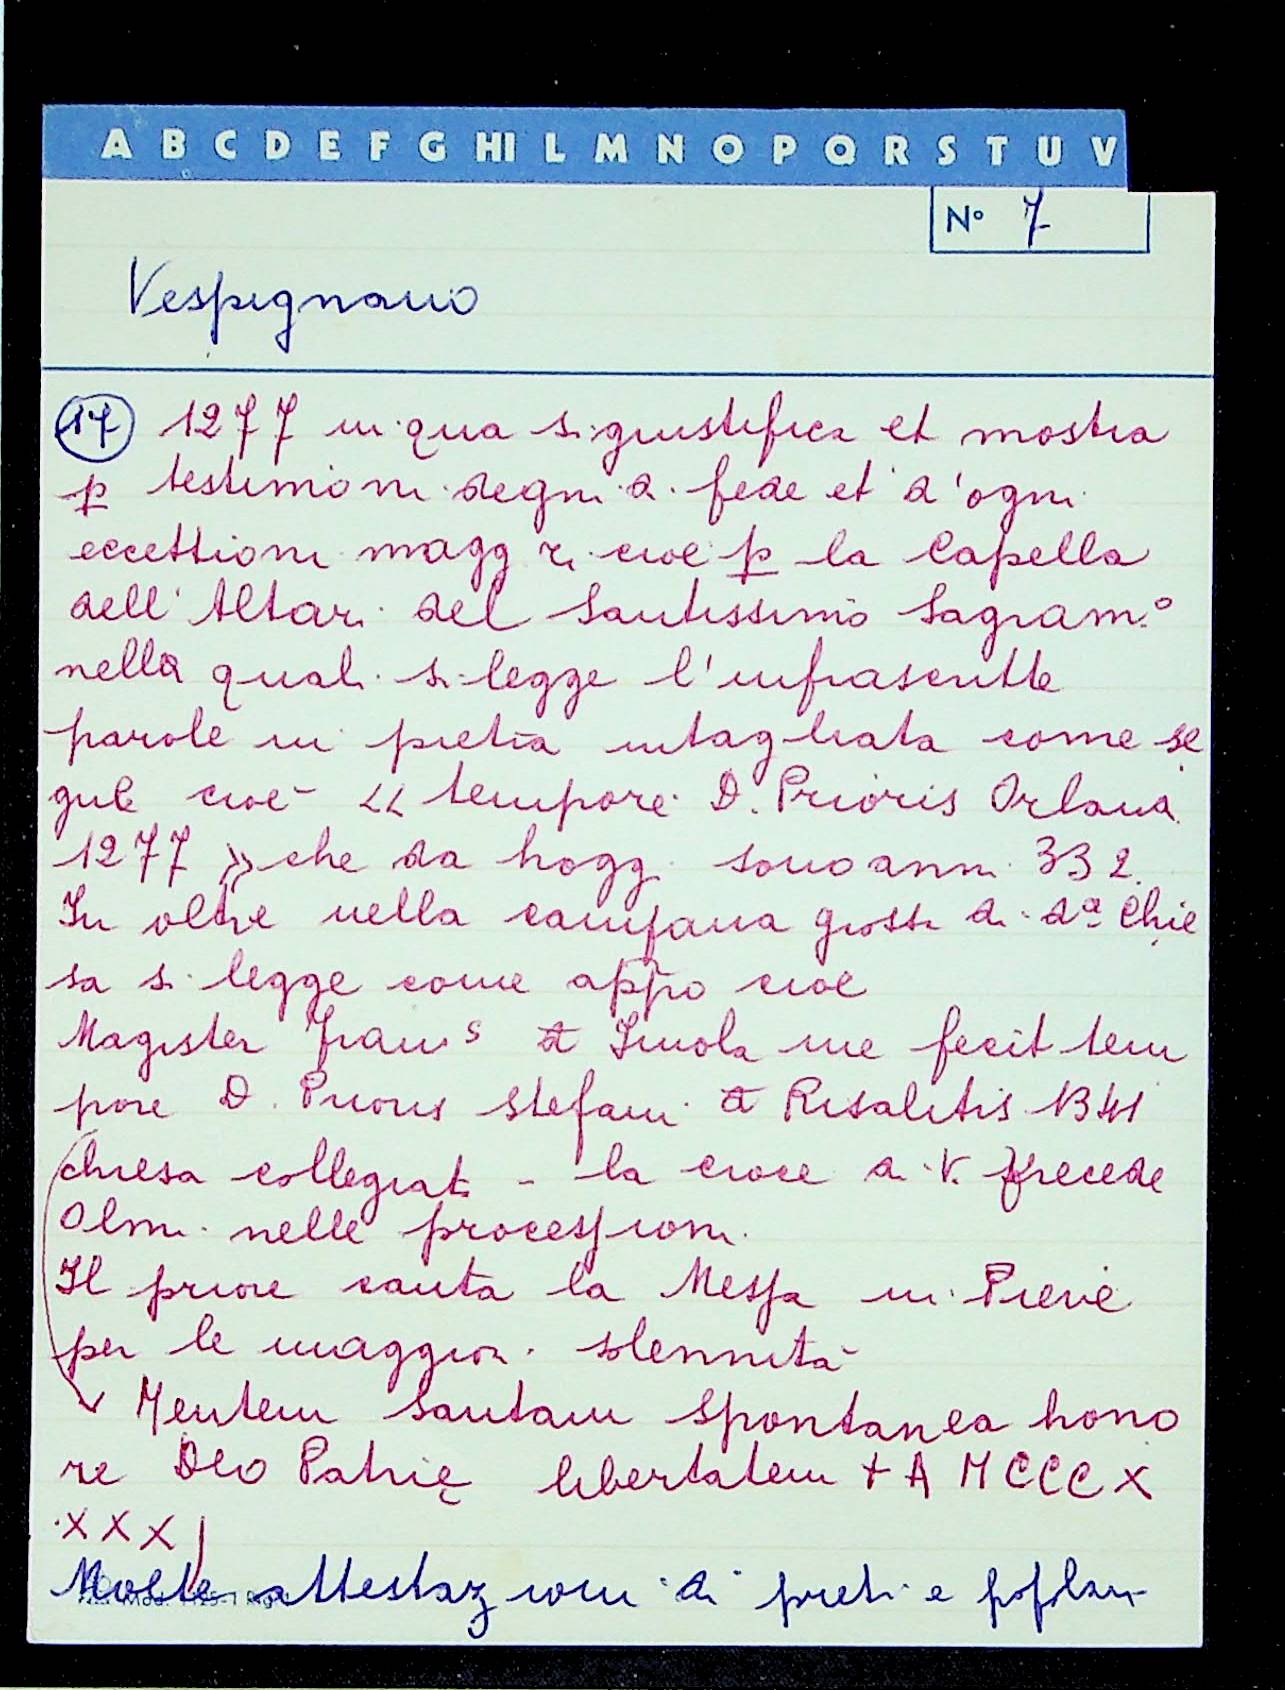 A B C D E F G HI L M N O P Q R S T U V
N° 7
Vespignano
17 1277 in qua si giustifica et mostra
p testimoni degni di fede et d'ogni
eccettioni magg ri cioe p la Capella
dell'Altar. del Santissimo Sagram.°
nella quale si legge l'infrascritte
parole in pietra intagliata come se
gue cioè << tempore D. Prioris Orlandi
1277 >> che da hoggi sono anni 332.
In oltre nella campana grossa di d.ª Chie
sa si legge come appo cioe
Magister Franc s d Imola me fecit tem
pore D. Prioris Stefani d Risalitis 1341
chiesa collegiata - la croce di V. precede
Olmi nelle processioni.
Il priore canta la Messa in Pieve
per le maggiori solennità
Mentem Santam Spontanea hono
re Deo Patrię libertatem + A M CCC X
XXX
Molte attestazioni di preti e popolani